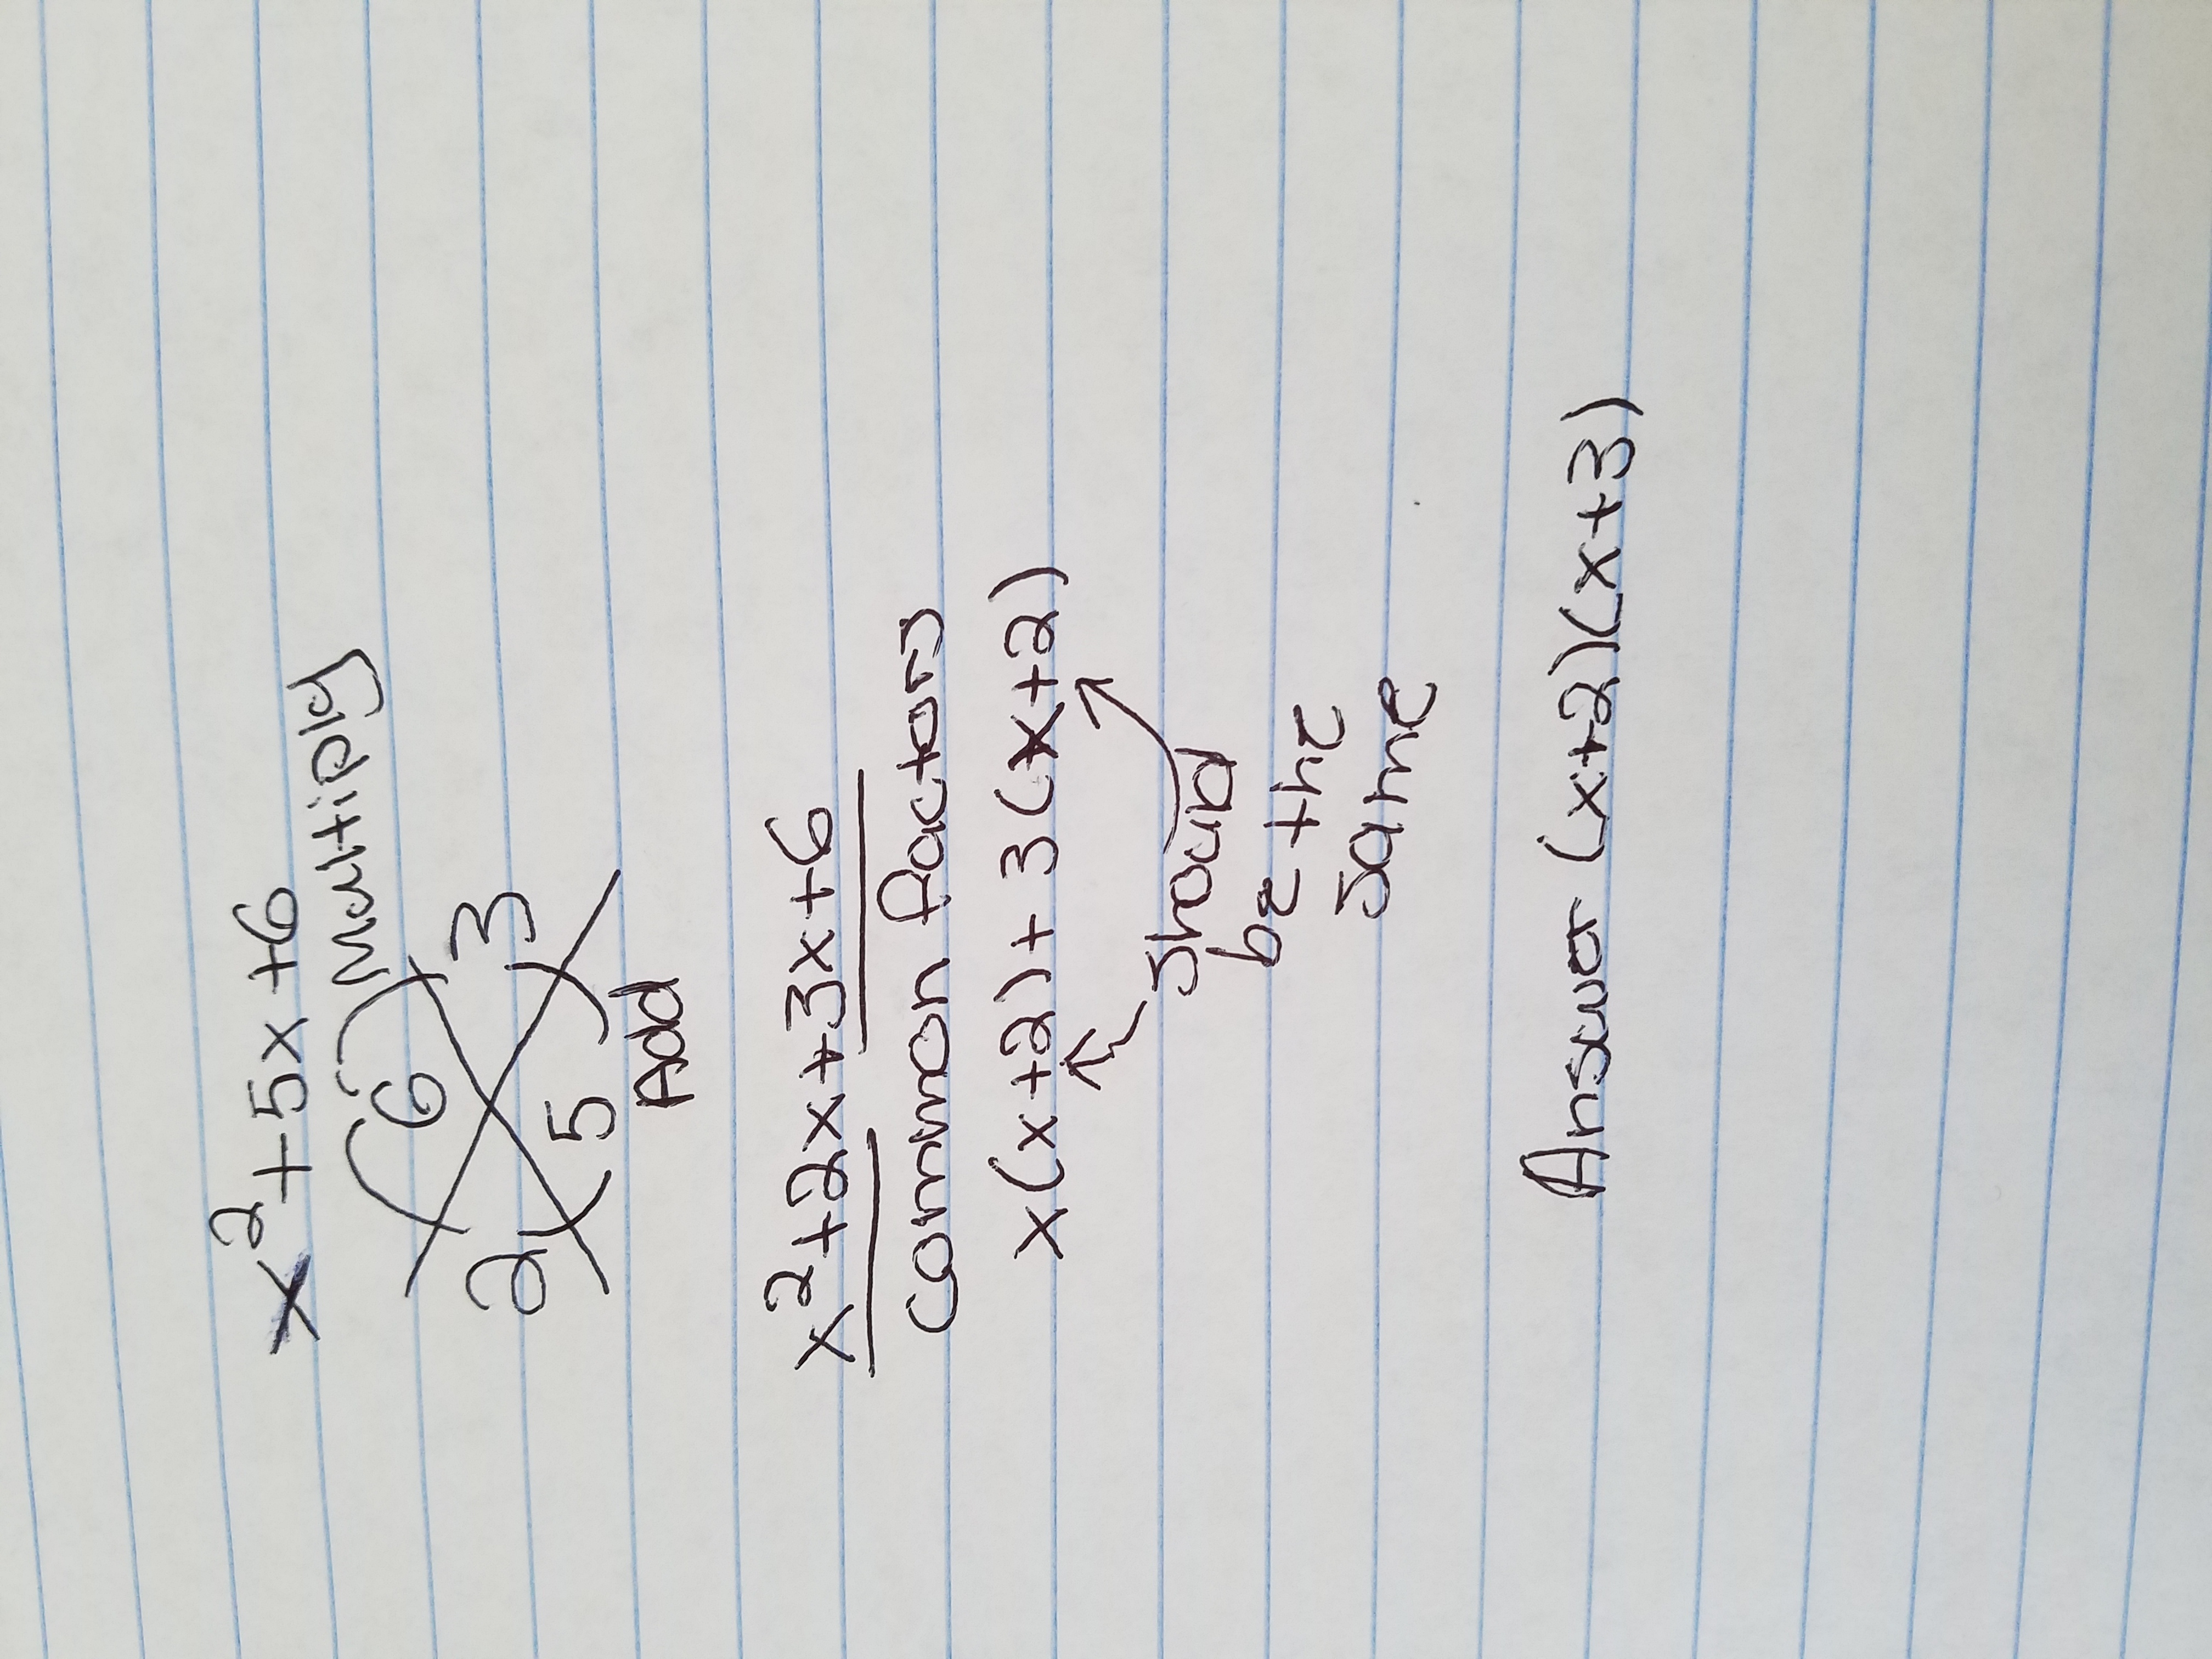 x²+5x+6
Multiply
6
2 3
5
Add
x²+2x+3x+6
Common factors
x(x+2)+3(x+2)
should
be the
same
Answer (x+2)(x+3)